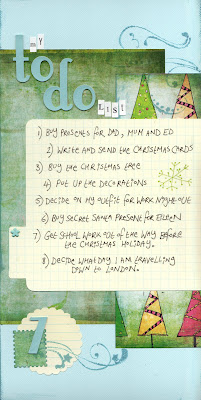 my
to
do
LIST
1) BUY PRESENTS FOR DAD, MUM AND ED
2) WRITE AND SEND THE CHRISTMAS CARDS
3) BUY THE CHRISTMAS TREE
4) PUT UP THE DECORATIONS
5) DECIDE ON MY OUTFIT FOR WORK NIGHT OUT
6) BUY SECRET SANTA PRESENT FOR EILEEN
7) GET SCHOOL WORK OUT OF THE WAY BEFORE
THE CHRISTMAS HOLIDAY.
8) DECIDE WHAT DAY I AM TRAVELLING
DOWN TO LONDON.
7